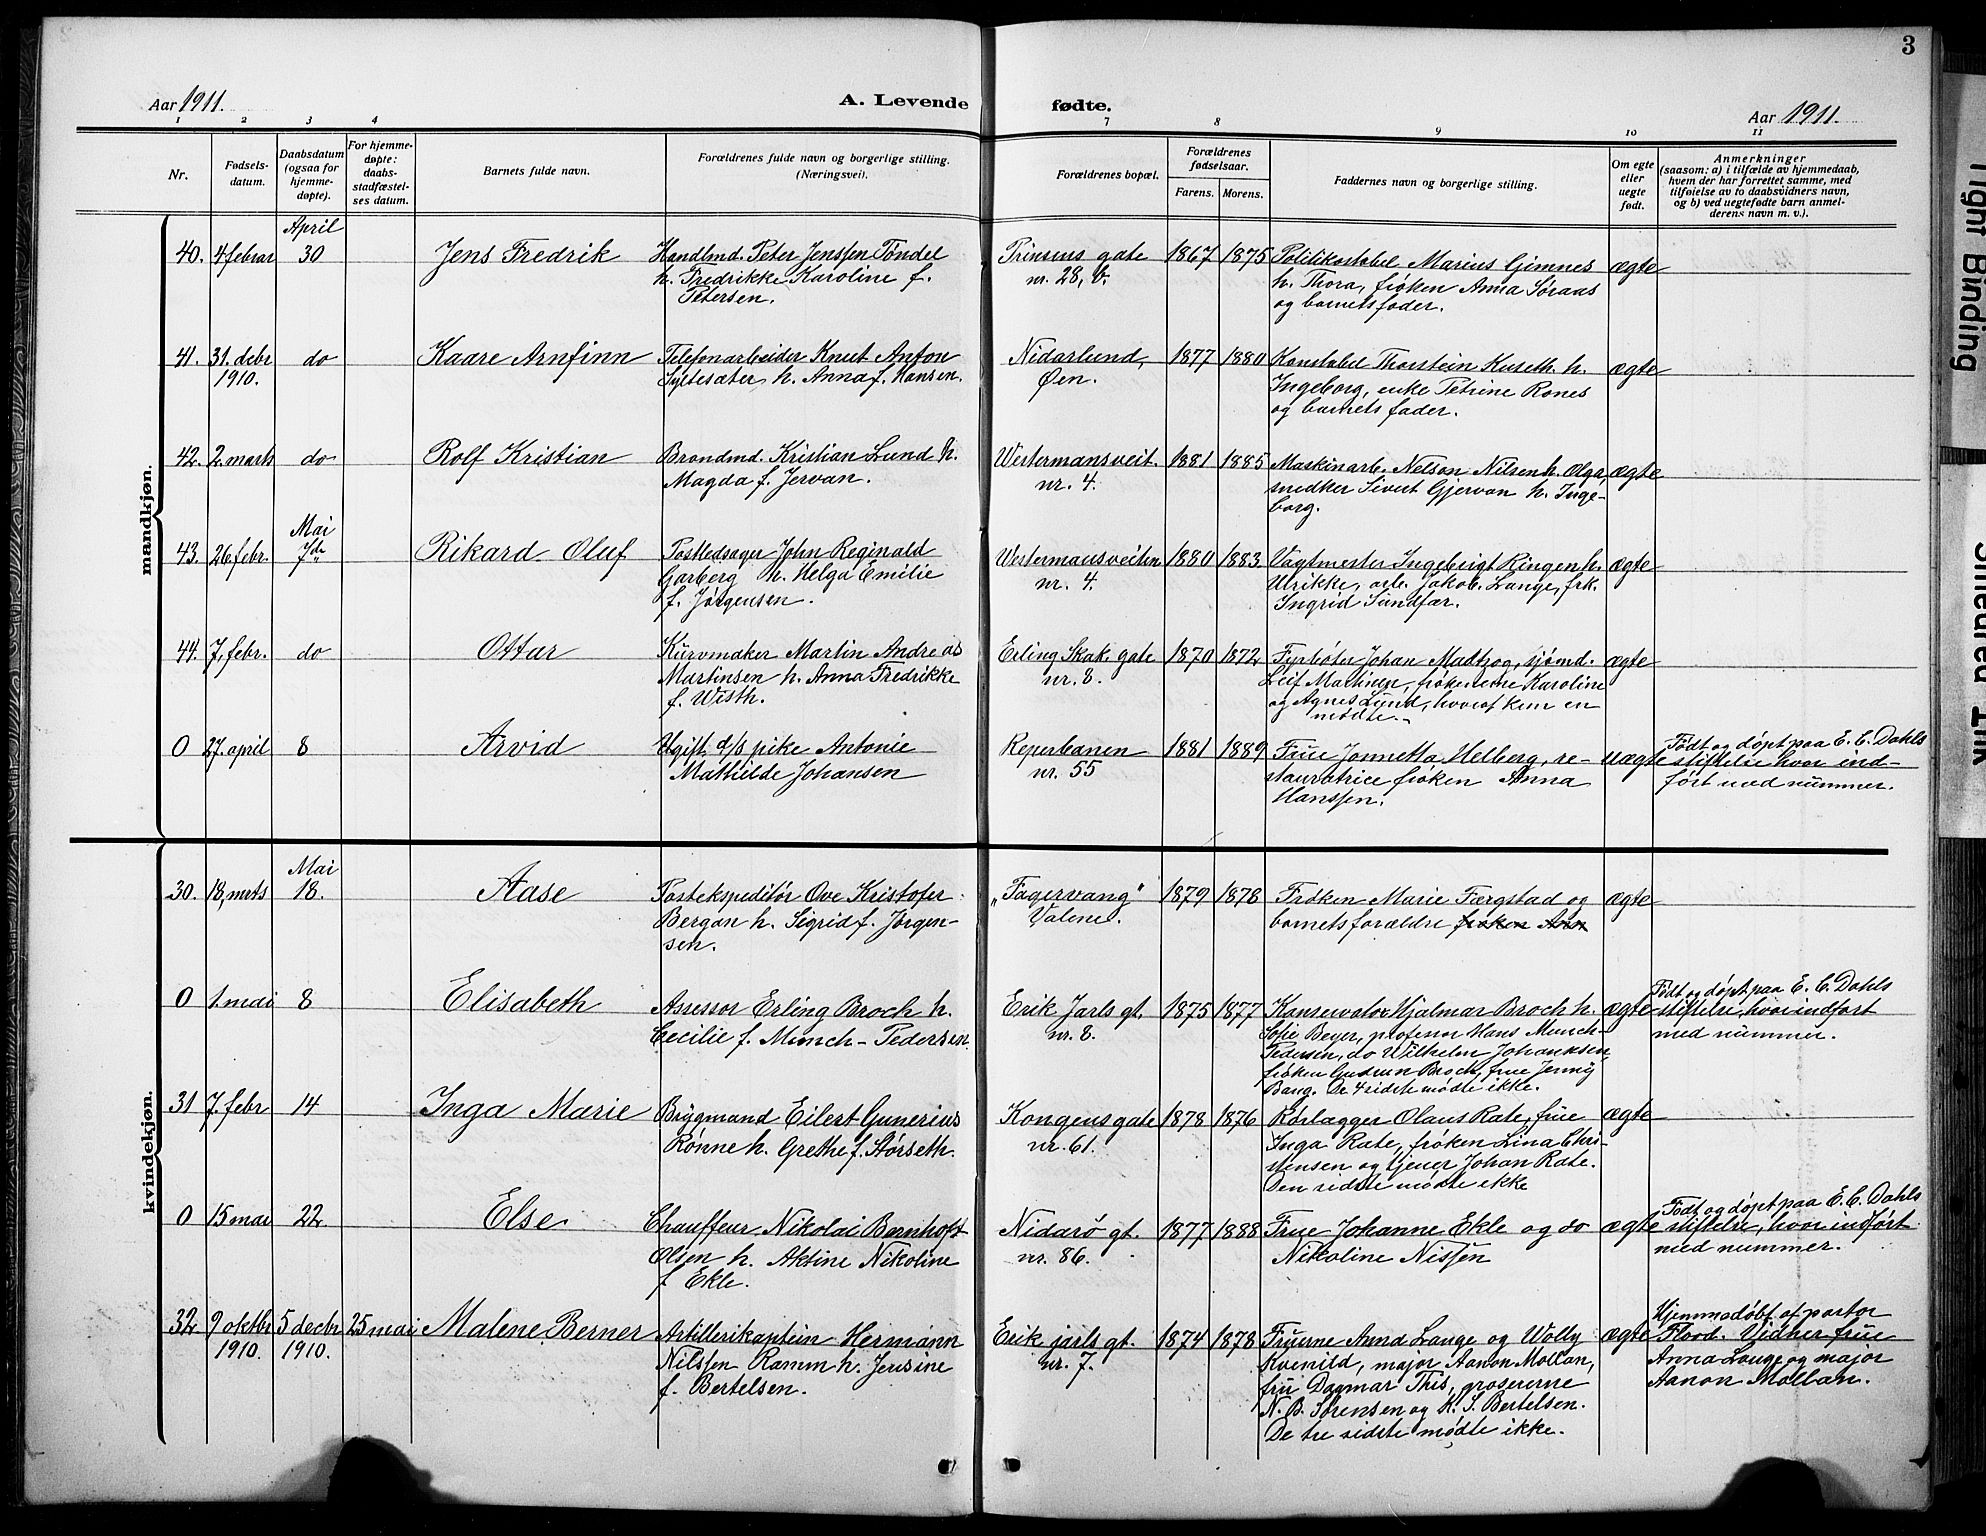 3
Aar 1911. A. Levende fødte. Aar 1911.
1 2 3 4 7 8 9 10 11
Nr.
Fødsels-
datum.
Daabsdatum
(ogsaa for
hjemme-
døpte).
For hjemme-
døpte:
daabs-
stadfæstel-
ses datum.
Barnets fulde navn.
Forældrenes fulde navn og borgerlige stilling.
(Næringsvei).
Forældrenes bopæl.
Forældrenes
fødselsaar.
Farens. Morens.
Faddernes navn og borgerlige stilling.
Om egte
eller
uegte
født.
Anmerkninger
(saasom: a) i tilfælde av hjemmedaab,
hvem der har forrettet samme, med
tilføielse av to daabsvidners navn,
og b) ved uegtefødte barn anmel-
derens navn m. v.).
mandkjøn.
April
40. 4 februar 30 Jens Fredrik
Handlmd. Peter Jenssen Tøndel
h. Fredrikke Karoline f.
Petersen.
Prinsens gate
nr. 28, b.
1867 1875
Politikonstabel Marius Gimnes
h. Thora, frøken Anna Søraas
og barnets fader.
ægte
41. 31. debr
1910.
do Kaare Arnfinn
Telefonarbeider Knut Anton
Syltesæter, h. Anna f. Hansen.
Nidarlund,
Øen.
1877 1880
Konstabel Thorstein Kuseth h.
Ingeborg, enke Petrine Rones
og barnets fader.
ægte
42. 2. marts do Rolf Kristian
Brandmd. Kristian Lund h.
Magda f. Jervan.
Westermansveit.
nr. 4.
1881 1885
Maskinarb. Nelson Nilsen h. Olga,
snedker Sivert Gjervan h. Inge-
borg.
ægte
Mai
43. 26 febr. 7de Rikard Oluf
Postledsager John Reginald
Garberg h. Helga Emilie
f. Jørgensen.
Westermansveiten
nr. 4.
1880 1883
Vagtmester Ingebrigt Ringen h.
Ulrikke, arb. Jakob. Lange, frk.
Ingrid Sundfær.
ægte
44. 7. febr. do Ottar
Kurvmaker Martin Andreas
Martinsen h. Anna Fredrikke
f. Wisth.
Erling Skak gate
nr. 8.
1870 1872
Fyrbøter Johan Madtzog, sjømd.
Leif Martinsen, frøknerne Karoline
og Agnes Lund, hvoraf kun en
mødte.
ægte
0 27. april 8 Arvid
Ugift d/o pike Antonie
Mathilde Johansen
Reperbanen
nr. 55
1881 1889
Frue Jonnetta Helberg, re-
stauratrice frøken Anna
Hanssen.
uægte
Født og døpt paa E. C. Dahls
stiftelse hvor ind-
ført med nummer.
kvindekjøn.
Mai
30. 18, mrts 18. Aase
Postekspeditør Ove Kristofer
Bergan h. Sigrid f. Jørgen-
sen.
„Fagervang"
Valene.
1879 1878
Frøken Marie Færgstad og
barnets forældre frøken Ann
ægte
0 1. mai 8 Elisabeth
Assessor Erling Broch h.
Cecilie f. Munch-Pedersen.
Erik Jarls gt.
nr. 8.
1875 1877
Konservator Hjalmar Broch h.
Sofie Beyer, professor Hans Munch-
Pedersen, do Wilhelm Johanksen,
frøken Gudrun Broch, frue Jenny
Bang. De 4 sidste mødte ikke.
ægte
Født og døpt paa E. C. Dahls
stiftelse, hvor indført
med nummer.
31 7. febr 14 Inga Marie
Bygmand Eilert Gunerius
Rønne h. Grethe f. Størseth.
Kongens gate
nr. 61.
1878 1876
Rørlægger Olaus Rate, frue
Inga Rate, frøken Lina Chri-
stensen og tjener Johan Rate.
Den sidste mødte ikke
ægte
0 15 mai 22 Else
Chauffeur Nikolai Bernhoft
Olsen h. Aktine Nikoline
f. Ekle.
Nidarø gt.
nr. 86.
1877 1888
Frue Johanne Ekle og do
Nikoline Nissen
ægte
Født og døpt paa E. C. Dahls
stiftelse, hvor indført
med nummer.
32. 9 oktbr
1910.
5 decbr
1910.
25 mai Malene Berner
Artillerikaptein Hermann
Nilssen Ramm h. Jensine
f. Bertelsen.
Erik jarls gt.
nr. 7.
1874 1878
Fruerne Anna Lange og Wolly
Kvenild, major Aanon Mollan,
fru Dagmar This, grosererne
N. B. Sørensen og K. S. Bertelsen.
De tre sidste mødte ikke.
ægte
Hjemmedøbt af pastor
Flood. Vidner frue
Anna Lange og major
Aanon Mollan.
Tight Binding